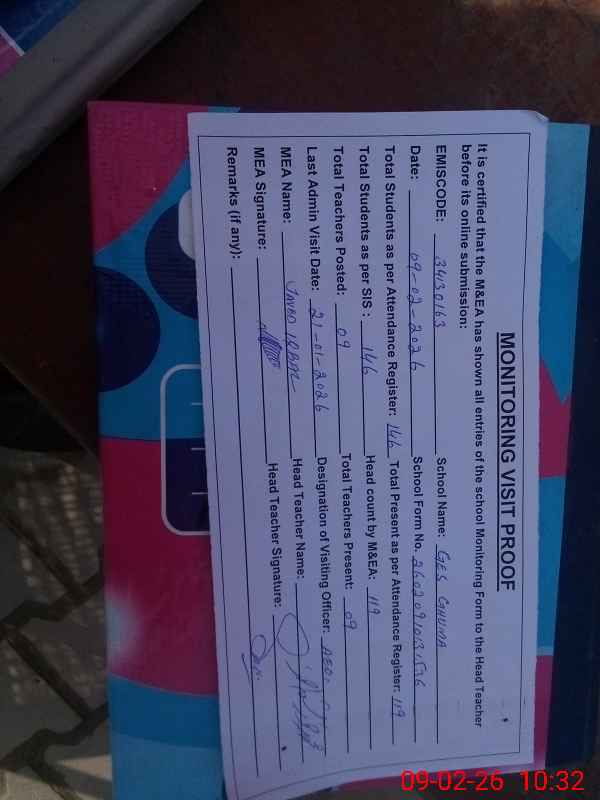 MONITORING VISIT PROOF
It is certified that the M&EA has shown all entries of the school Monitoring Form to the Head Teacher
before its online submission:
EMISCODE: 34130163 School Name: GES GHUMA
Date: 09-02-2026 School Form No. 2602091031536
Total Students as per Attendance Register: 146 Total Present as per Attendance Register: 119
Total Students as per SIS : 146 Head count by M&EA: 119
Total Teachers Posted: 09 Total Teachers Present: 09
Last Admin Visit Date: 21-01-2026 Designation of Visiting Officer: AEO
MEA Name: JAVED IQBAL Head Teacher Name:
MEA Signature: Head Teacher Signature:
Remarks (if any):
09-02-26 10:32